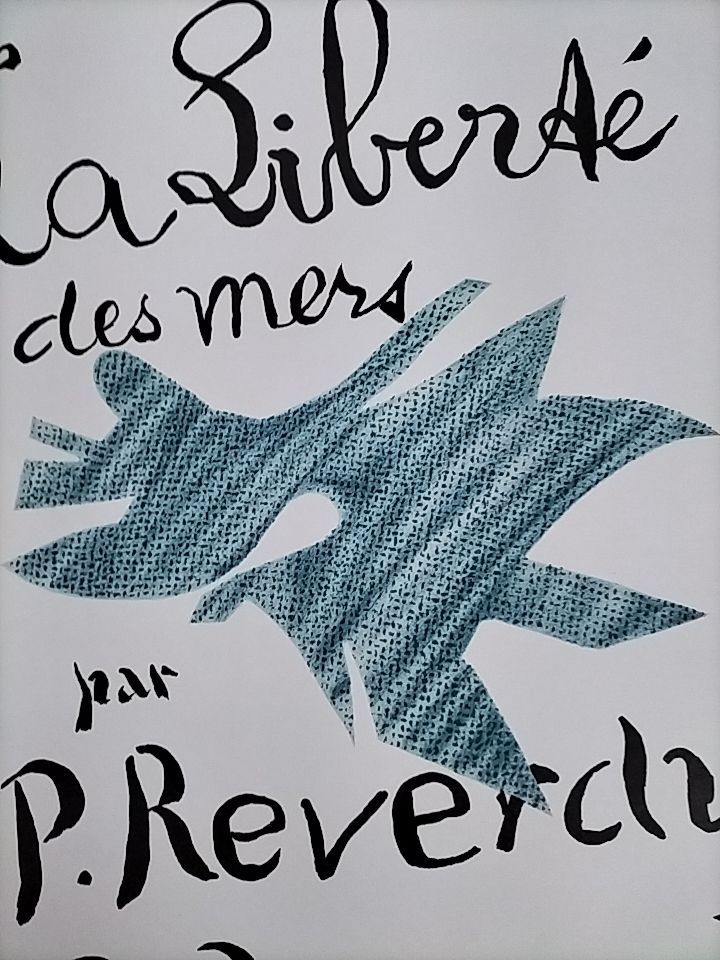 La Liberté
des mers
par
P. Reverdy